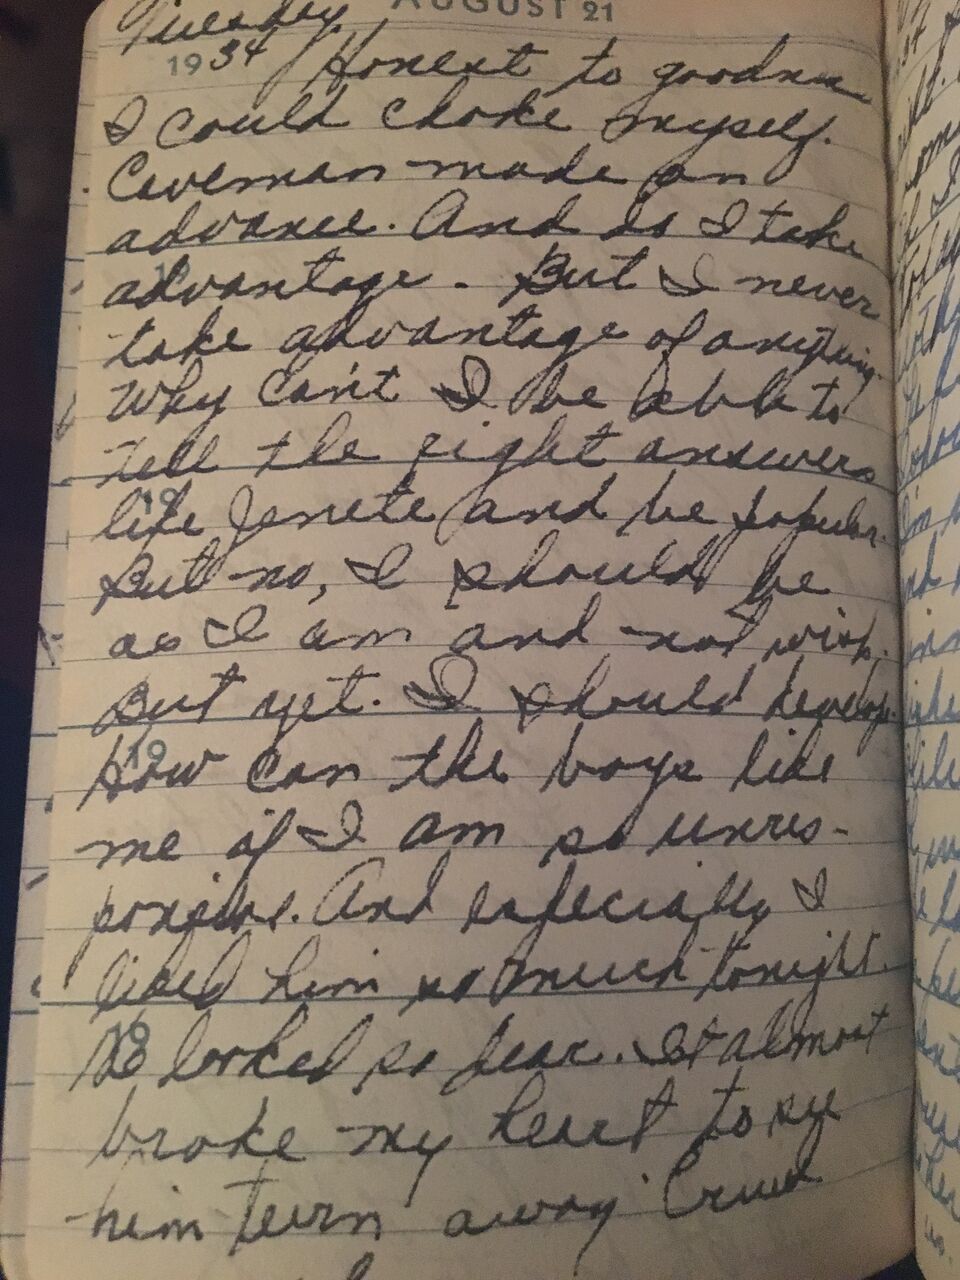 AUGUST 21
Tuesday
1934 Honest to goodness
I could choke myself.
Caveman made an
advance. And do I take
advantage. But I never
take advantage of anything.
Why can't I be able to
tell the right answers
19
like Jenete and be popular.
But no, I should be
as I am and not wish.
But yet. I should develope.
19
How can the boys like
me if I am so unres-
ponsive. And especially I
liked him so much tonight.
19
He looked so dear. It almost
broke my heart to see
him turn away. Cruel